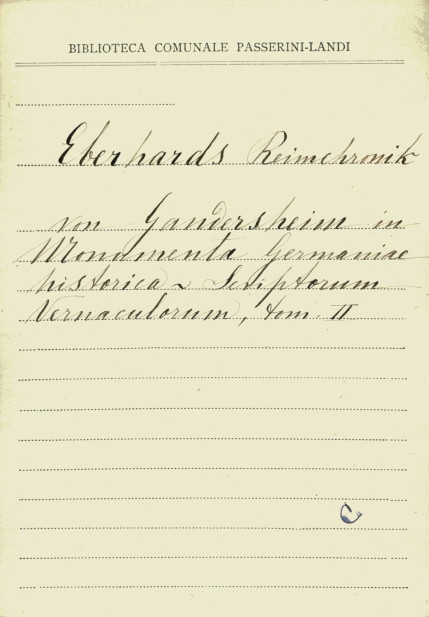 BIBLIOTECA COMUNALE PASSERINI-LANDI
Eberhards Reimchronik
von Gandersheim in
Monumenta Germaniae
historica ~ Scriptorum
Vernaculorum, tom. II
C